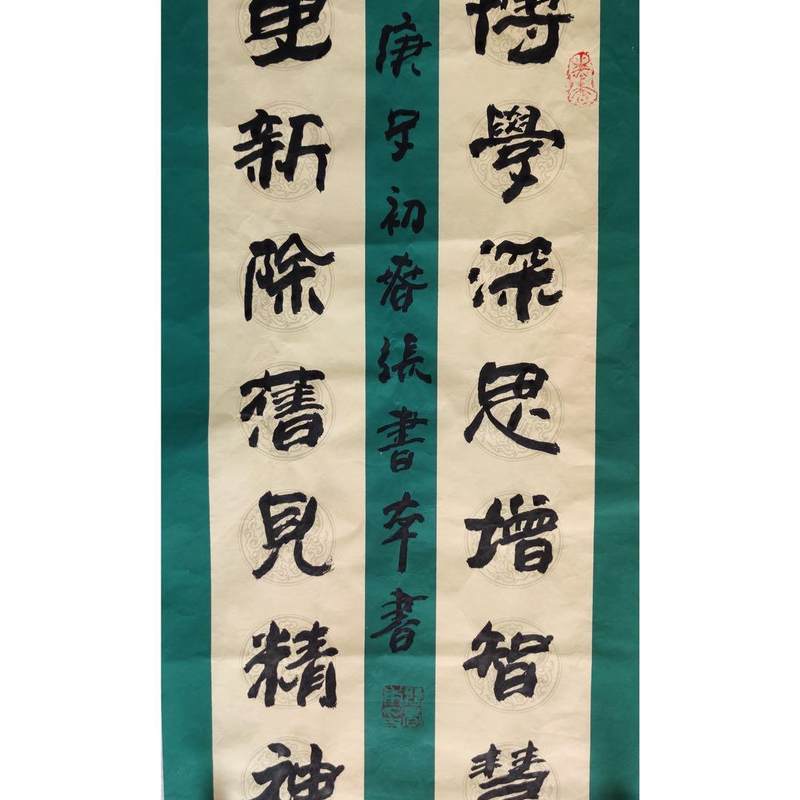 博學深思增智慧
更新除舊見精神
庚子初春張書本書